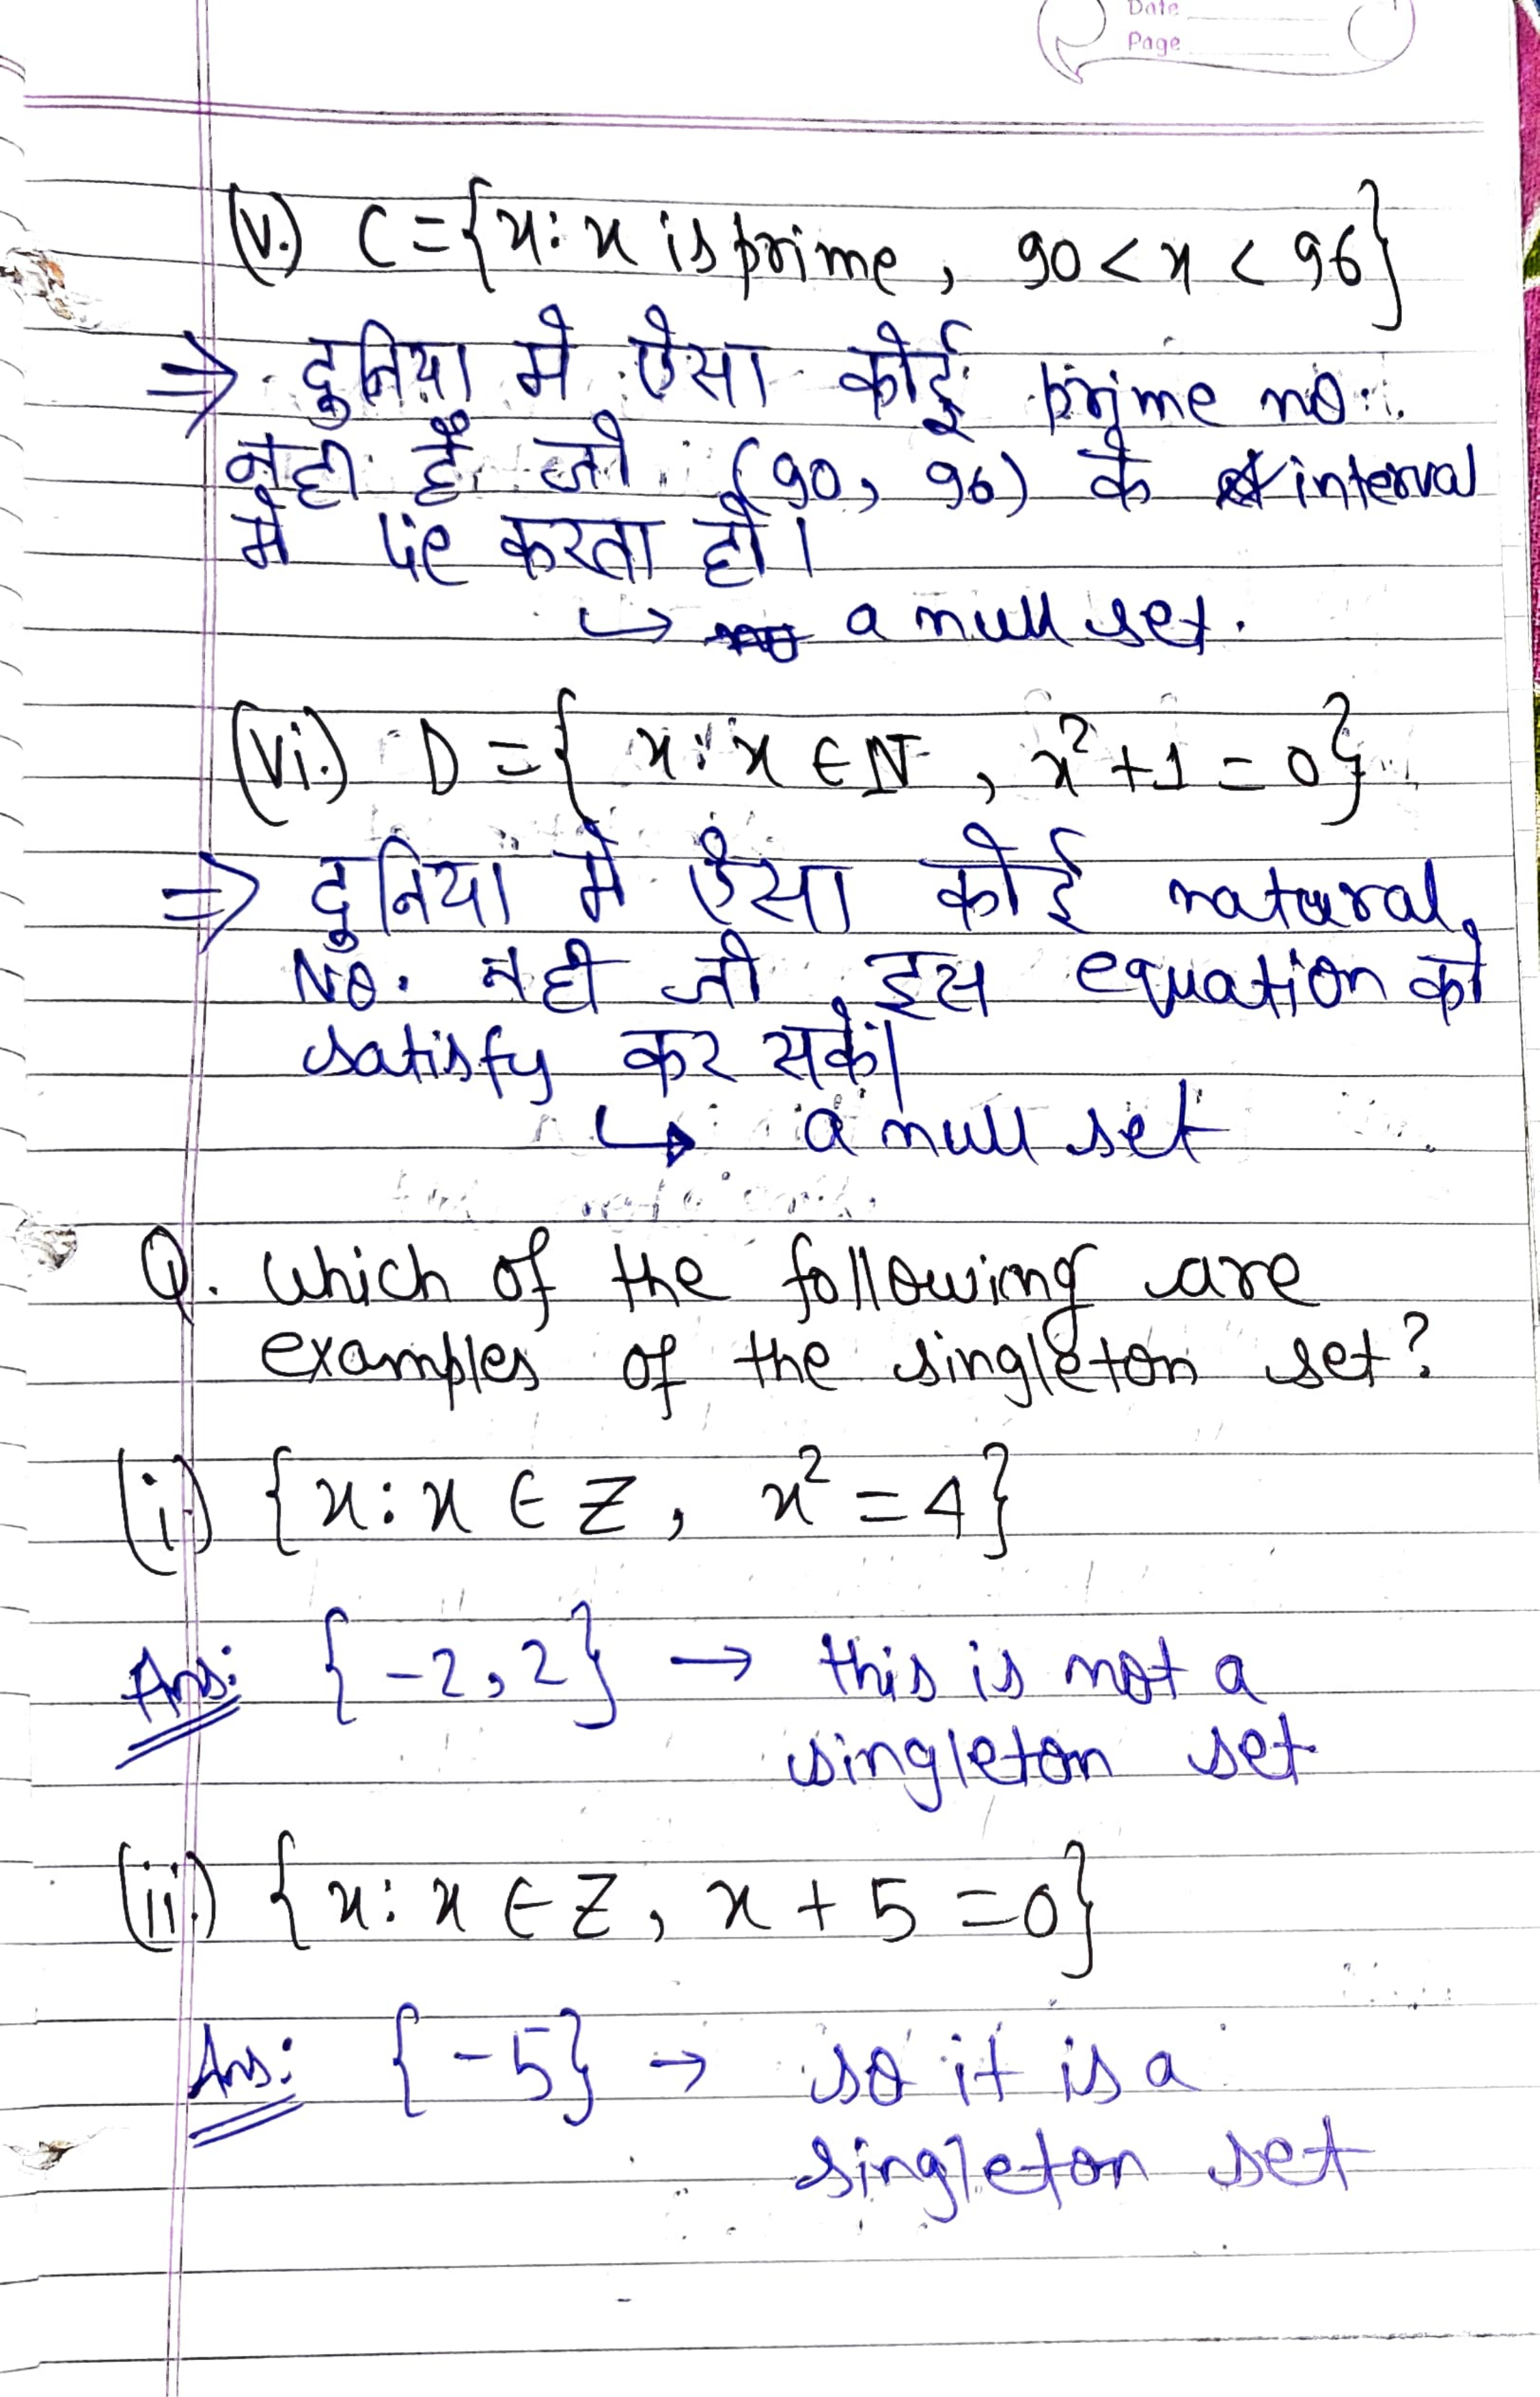 Date
Page
(v.) C = {x: x is prime, 90 < x < 96}
⇒ दुनिया में ऐसा कोई prime no.
नही हैं जो (90, 96) के interval
में lie करता हो।
↳ a null set.
(vi.) D = { x: x ∈ N, x²+1 = 0}
⇒ दुनिया में ऐसा कोई natural
No. नही जो इस equation को
satisfy कर सकें।
↳ a null set
Q. Which of the following are
examples of the singleton set?
(i.) {x: x ∈ Z, x² = 4}
Ans: {-2, 2} → this is not a
singleton set
(ii.) {x: x ∈ Z, x + 5 = 0}
Ans: {-5} → so it is a
singleton set